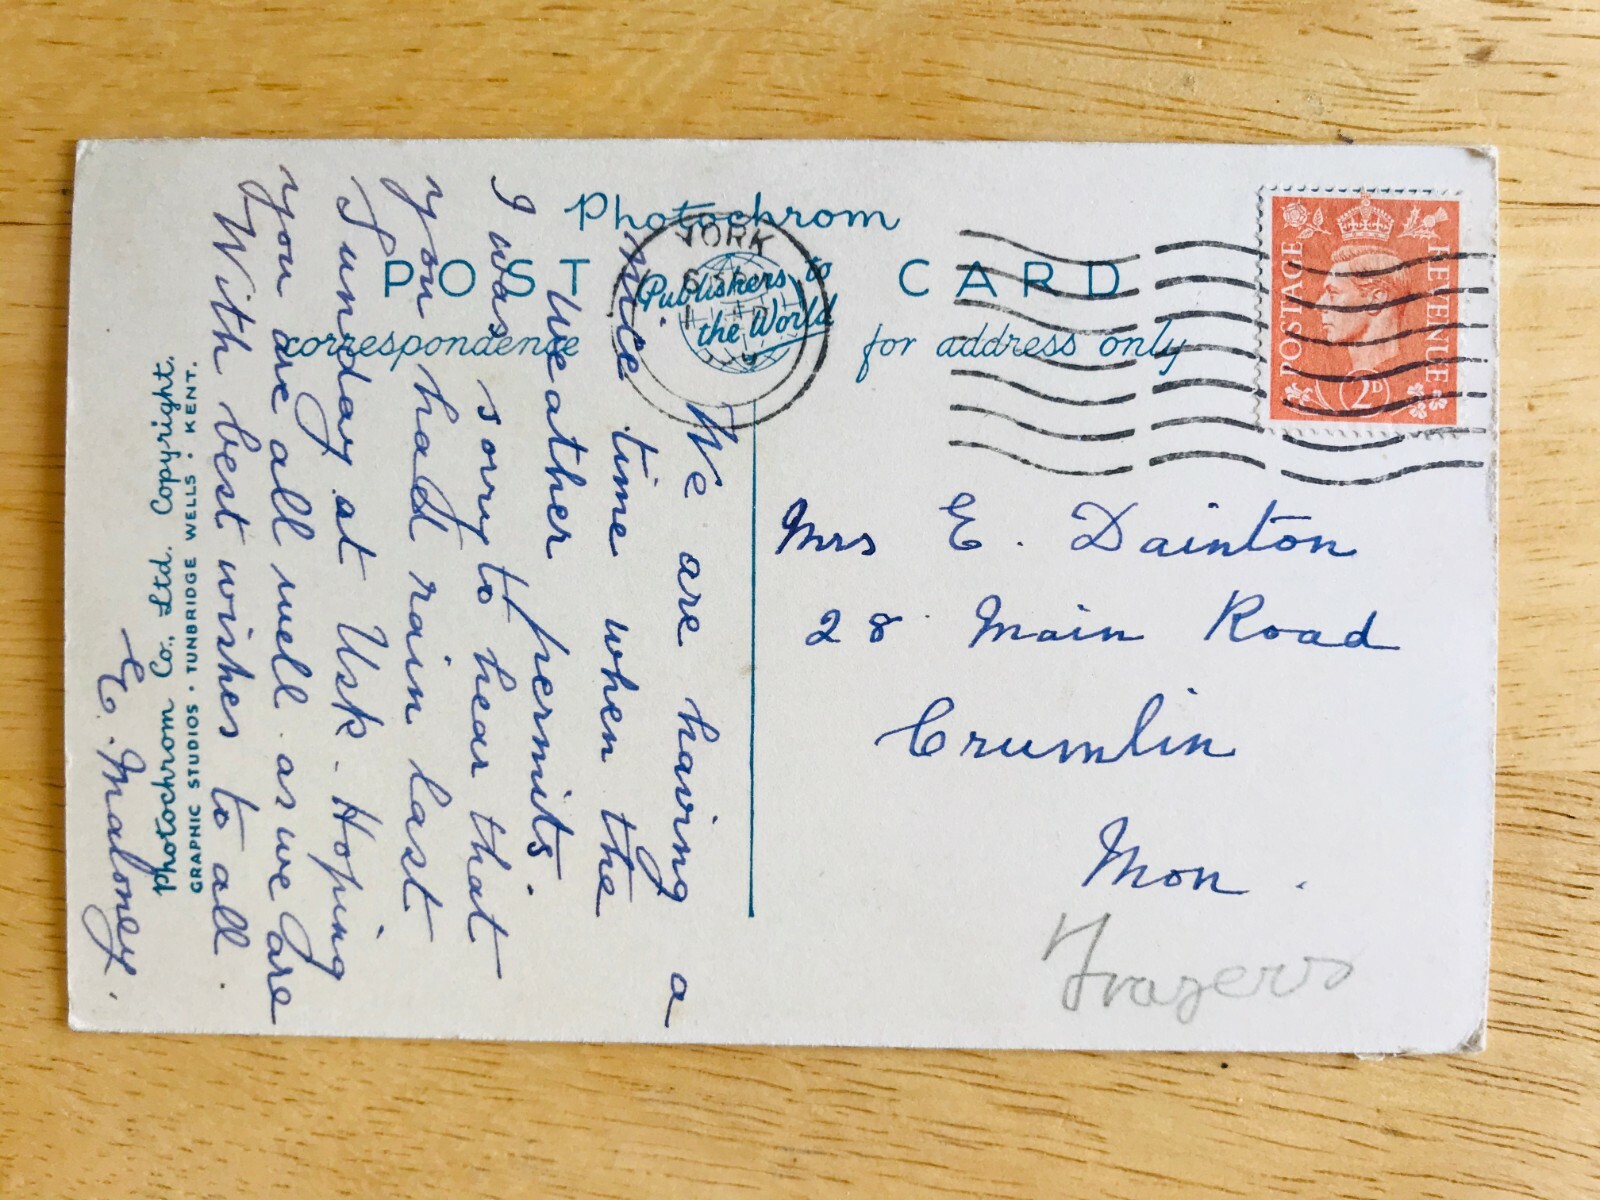 Photochrom
POST CARD
Publishers to
the World
correspondence
for address only
YORK
POSTAGE
REVENUE
2D
We are having a
nice time when the
weather permits.
I was sorry to hear that
you had rain last
Sunday at Usk. Hoping
you are all well as we are
With best wishes to all.
E. Maloney.
Photochrom Co., Ltd. Copyright.
GRAPHIC STUDIOS · TUNBRIDGE WELLS · KENT.
Mrs E. Dainton
28 Main Road
Crumlin
Mon.
Frazers